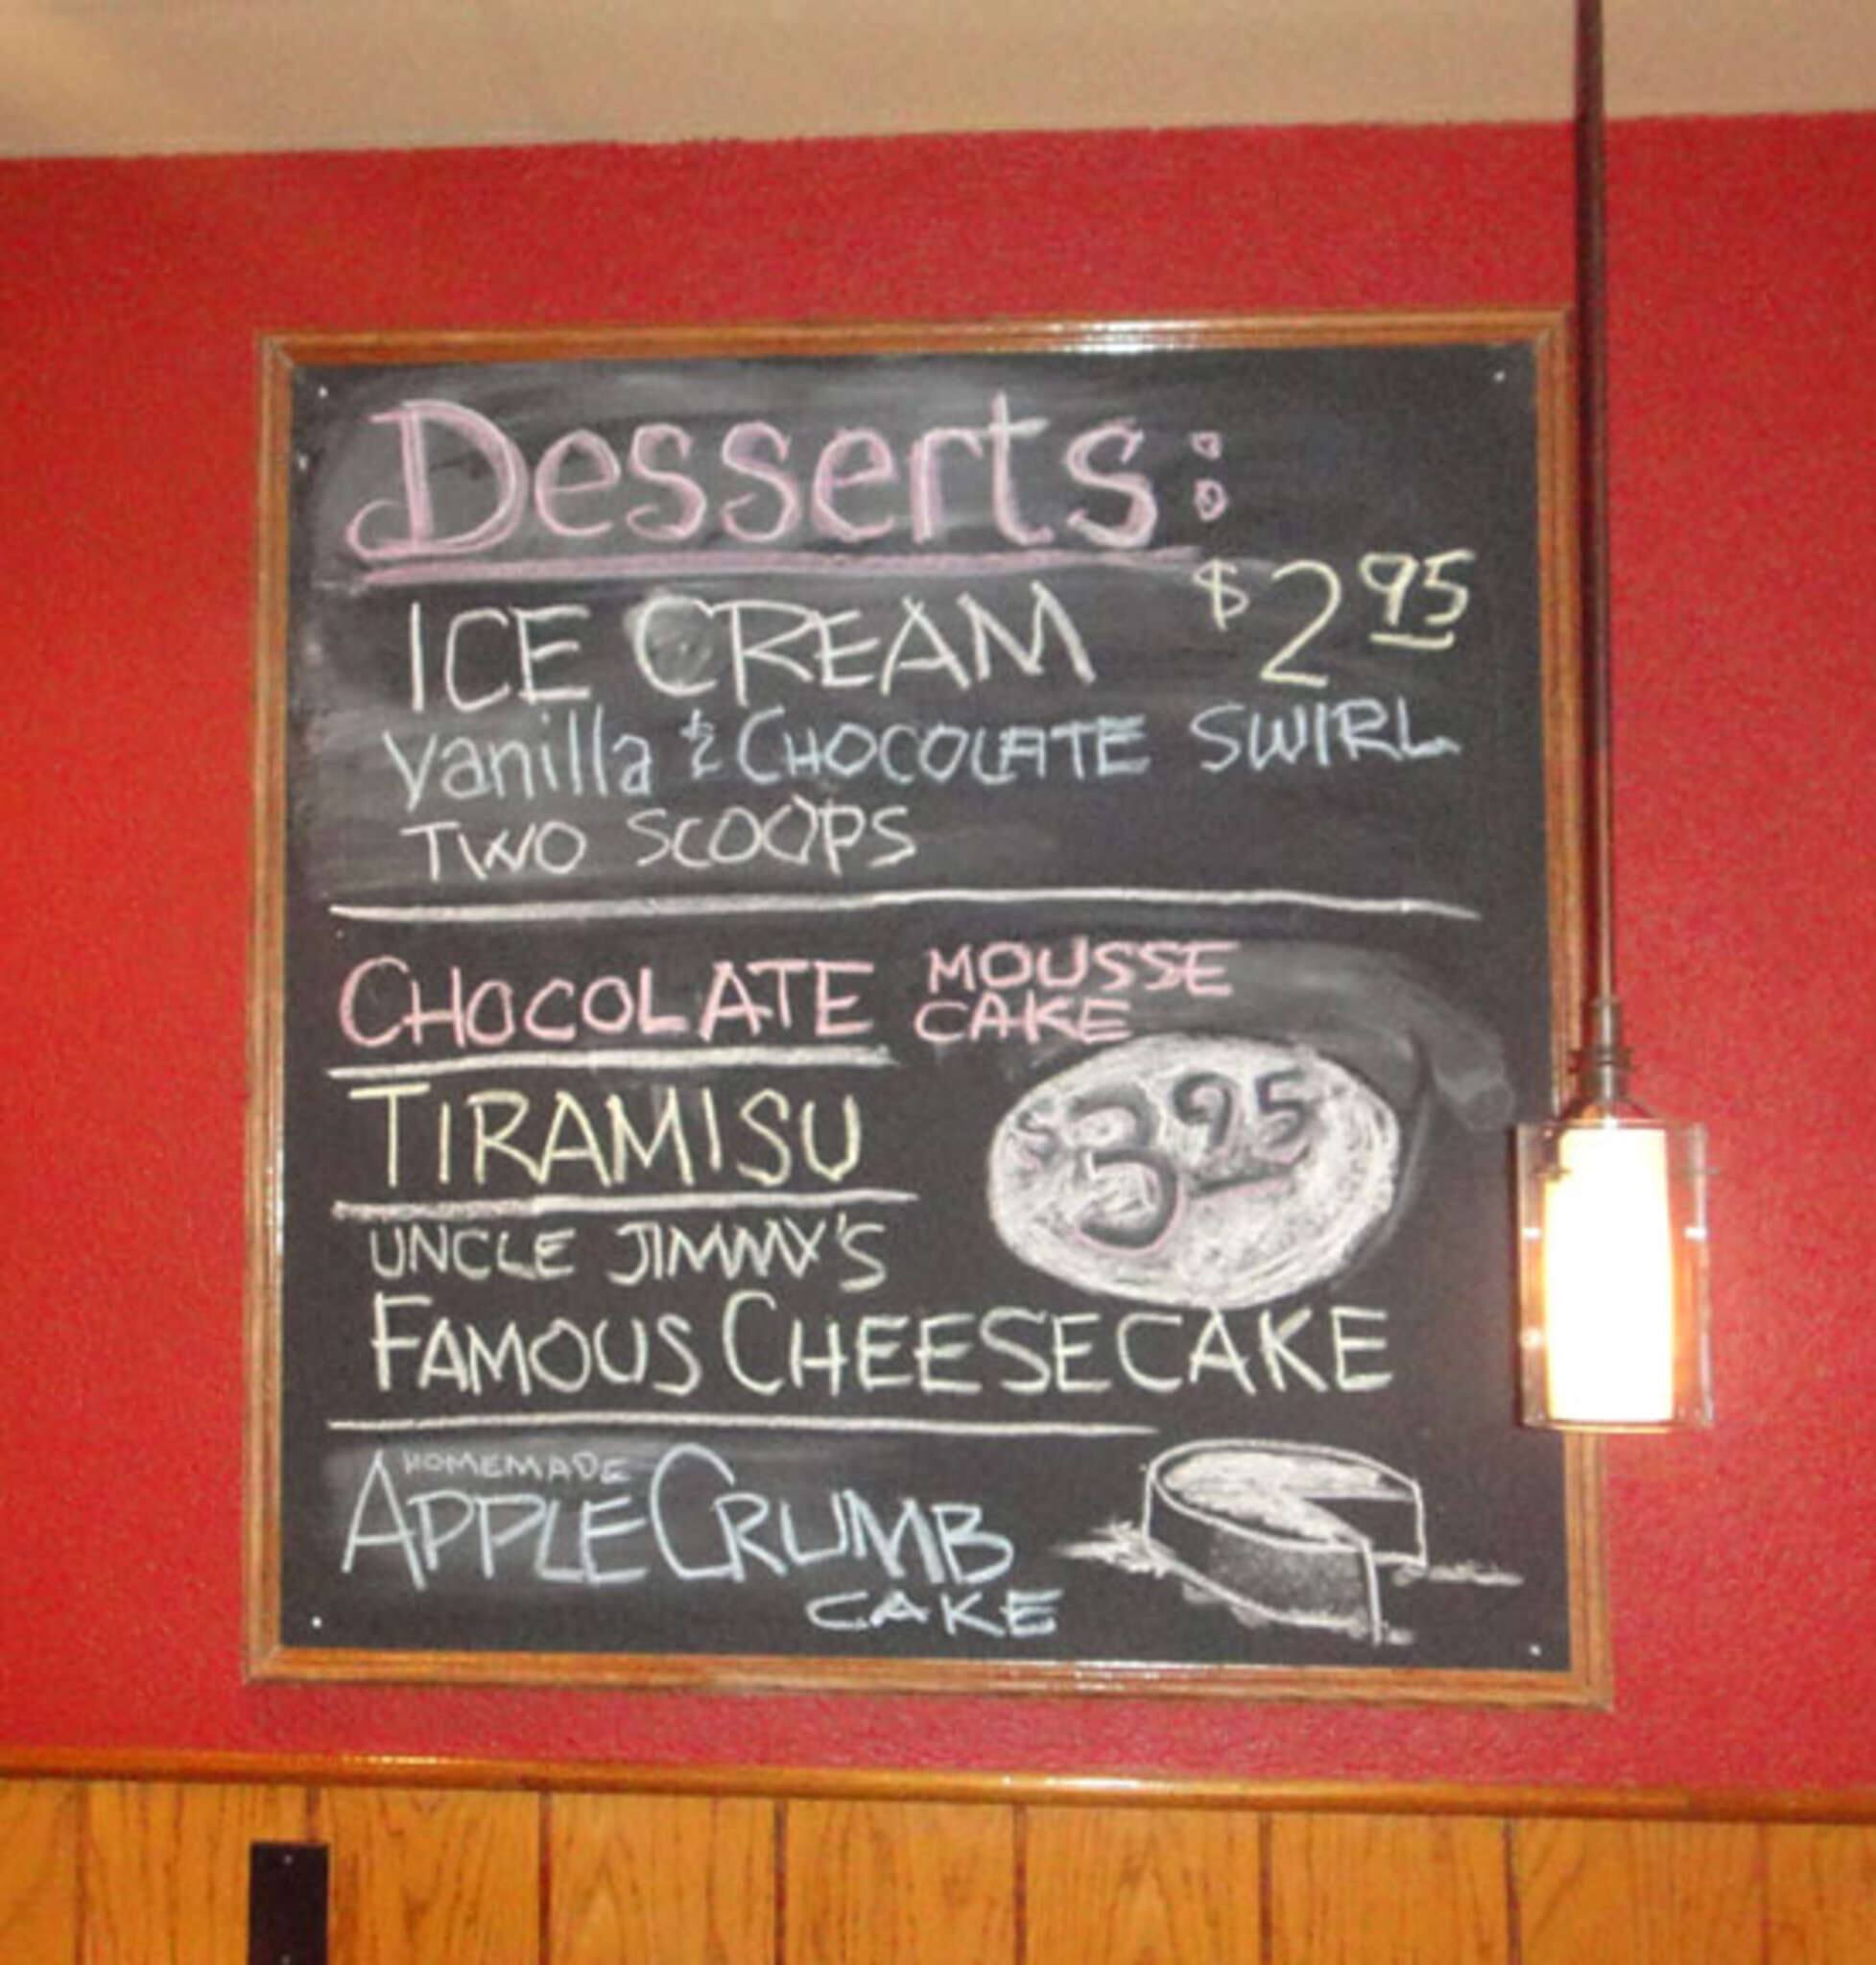 Desserts:
ICE CREAM $2.95
Vanilla & CHOCOLATE SWIRL
TWO SCOOPS
CHOCOLATE MOUSSE
CAKE
TIRAMISU
$3.95
UNCLE JIMMY'S
FAMOUS CHEESECAKE
HOMEMADE
APPLE CRUMB
CAKE